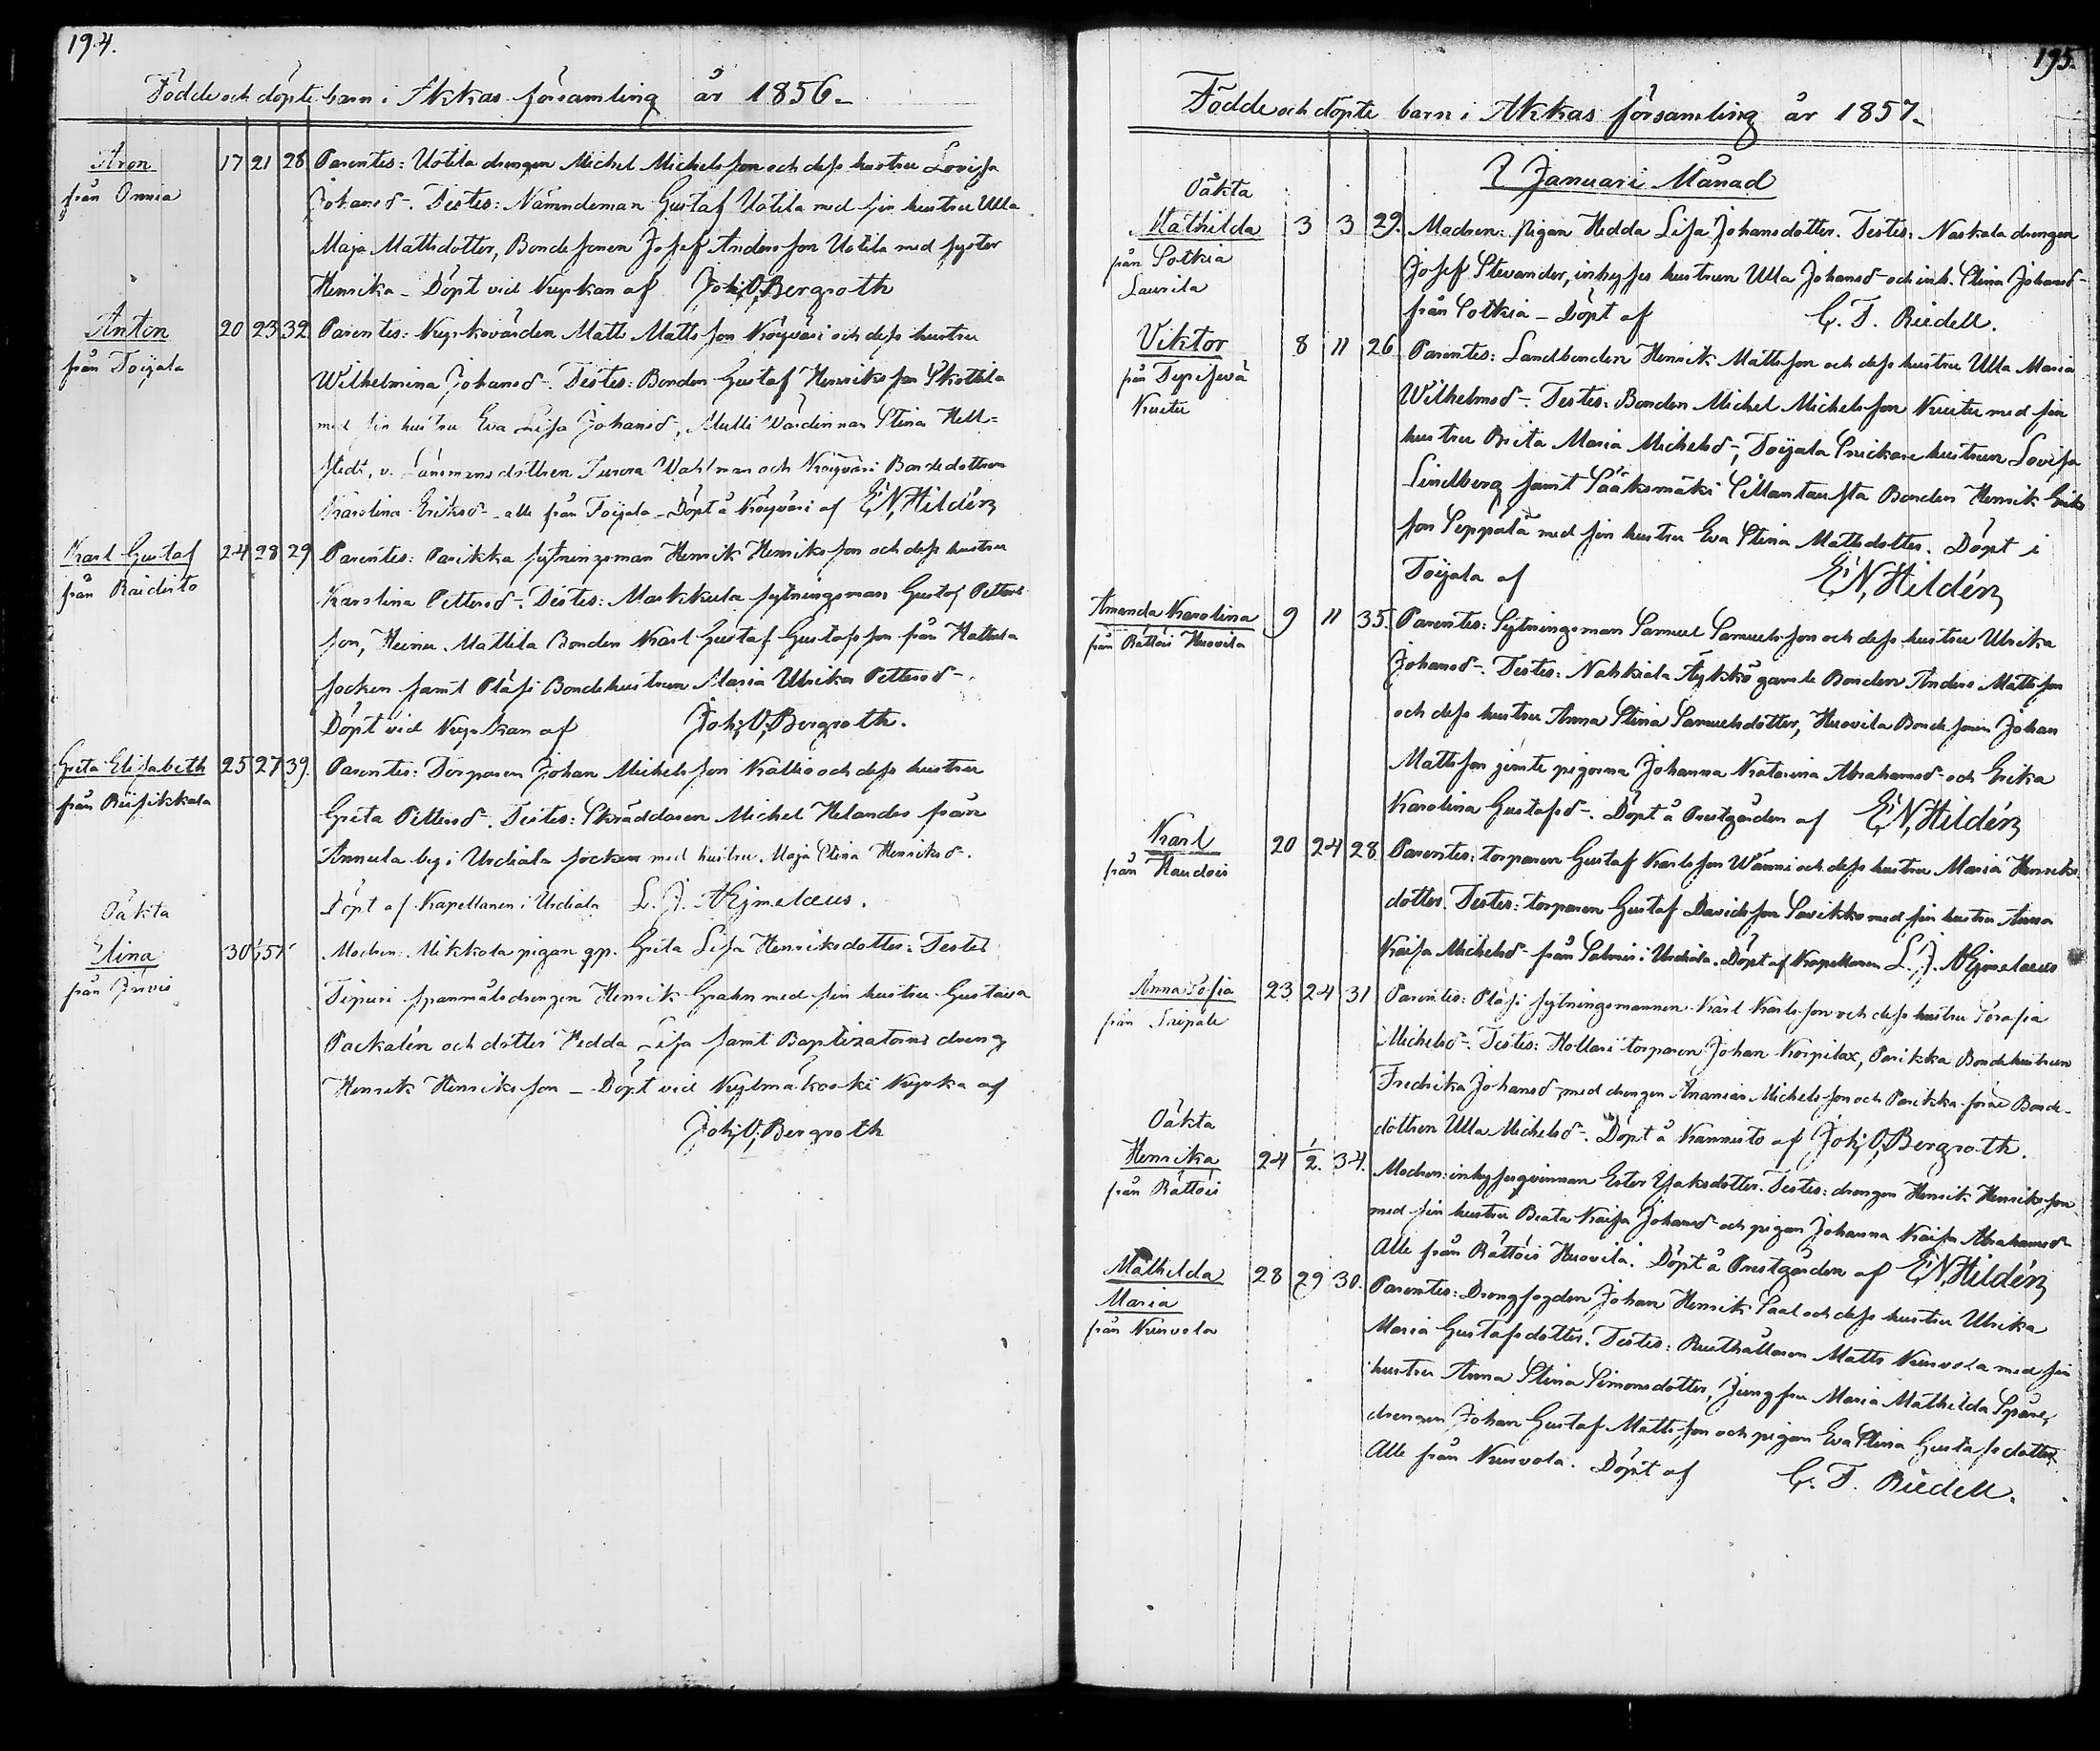 194.
Födde och döpte barn i Akkas församling år 1856.
Aron
från Onnia
17 21 28
Parentes: Uotila drengen Michel Michelsson och dess hustru Lovisa
Johansd-. Testes: Nämndeman Gustaf Uotila med sin hustru Ulla
Maja Mattsdotter, Bondesonen Josef Andersson Uotila med syster
Henrika - Döpt vid Kyrkan af Joh. O. Bergroth
Anton
från Toijala
20 23 32
Parentes: Kyrkovärden Matts Mattsson Köyväri och dess hustru
Wilhelmina Johansd-. Testes: Bonden Gustaf Henriksson Skottila
med sin hustru Eva Lisa Johansd-, Mulli Värdinnan Stina Hell-
stedt, v. Länsmansdottren Aurora Wahlman och Köyväri Bondedottren
Karolina Eriksd- alla från Toijala - Döpt å Köyväri af E. N. Hildén
Karl Gustaf
från Kaidesto
24 28 29
Parentes: Parikka sytningsman Henrik Henriksson och dess hustru
Karolina Pettersd-. Testes: Markkula sytningsman Gustaf Petters
son, Heinu Mattila Bonden Karl Gustaf Gustafsson från Hattula
socken samt Pläsi Bondehustrun Maria Ulrika Pettersd-.
Döpt vid Kyrkan af Joh. O. Bergroth.
Greta Elisabeth
från Riisikkala
25 27 39.
Parentes: Torparen Johan Michelsson Kallio och dess hustru
Greta Pettersd-. Testes: Skräddaren Michel Helander från
Annula by i Urdiala socken med hustru Maja Stina Henriksd-.
Döpt af Kapellanen i Urdiala L. J. Aejmelaeus.
Oäkta
Elina
från Järvis
30
Modren: Mikkola pigan gp. Greta Lisa Henriksdotter. Testes
Tipuri spanmålsdrengen Henrik Grahn med sin hustru Gustava
Packalén och dotter Hedda Lisa samt Baptizatoris dreng
Henrik Henriksson - Döpt vid Kylmäkoski Kyrka af
Joh. O. Bergroth
195.
Födde och döpte barn i Akkas församling år 1857.
I Januari Månad
Oäkta
Mathilda
från Sotkia
Laurila
3 3 29.
Modren: Pigan Hedda Lisa Johansdotter. Testes: Naskala drengen
Josef Stevander, inhyses hustrun Ulla Johansd- och inh. Stina Johansd-
från Sotkia - Döpt af C. F. Riedell.
Viktor
från
Kuritu
8 11 26
Parentes: Landbonden Henrik Mattsson och dess hustru Ulla Maria
Wilhelmsd-. Testes: Bonden Michel Michelsson Kuritu med sin
hustru Brita Maria Michelsd-, Toijala Snickare hustrun Lovisa
Lindberg samt Sääksmäki Bonden Henrik Eriks
son Seppälä med sin hustru Eva Stina Mattsdotter. Döpt i
Toijala af E. N. Hildén
Amanda Karolina
från Rättöis Huovila
9 11 35
Parentes: Sytningsman Samuel Samuelsson och dess hustru Ulrika
Johansd-. Testes: Nahkiala Äykkö gamle Bonden Anders Mattsson
och dess hustru Anna Stina Samuelsdotter, Huovila Bondesonen Johan
Mattsson jemte pigorna Johanna Katarina Abrahamsd- och Erika
Karolina Gustafsd-. Döpt å Prestgården af E. N. Hildén
Karl
från Haudois
20 24 28
Parentes: torparen Gustaf Karlsson Wänni och dess hustru Maria Henriks
dotter. Testes: torparen Gustaf Davidsson Savikko med sin hustru Anna
Kaisa Michelsd- från Salmis i Urdiala. Döpt af Kapellanen L. J. Aejmelaeus
Anna Sofia
från Sripale
23 24 31
Parentes: Pläsi sytningsmannen Karl Karlsson och dess hustru Serafia
Michelsd-. Testes: Hollari torparen Johan Korpilax, Parikka Bondehustrun
Fredrika Johansd- med drengen Ananias Michelsson och Parikka förre Bonde-
dottren Ulla Michelsd-. Döpt å Kannisto af Joh. O. Bergroth.
Oäkta
Henrika
från Rättöis
24 1/2. 34.
Modren: inhysesqvinnan Ester Isaksdotter. Testes: drengen Henrik Henriksson
med sin hustru Beata Kaisa Johansd- och pigan Johanna Kaisa Abrahamsd-
Alle från Rättöis Huovila. Döpt å Prestgården af E. N. Hildén
Mathilda
Maria
från Kurvola
28 29 30.
Parentes: Drengfogden Johan Henrik Saal och dess hustru Ulrika
Maria Gustafsdotter. Testes: Rusthållaren Matts Kurvola med sin
hustru Anna Stina Simonsdotter, Jungfru Maria Mathilda Spåre,
drengen Johan Gustaf Mattsson och pigan Eva Stina Gustafsdotter
Alle från Kurvola. Döpt af C. F. Riedell.